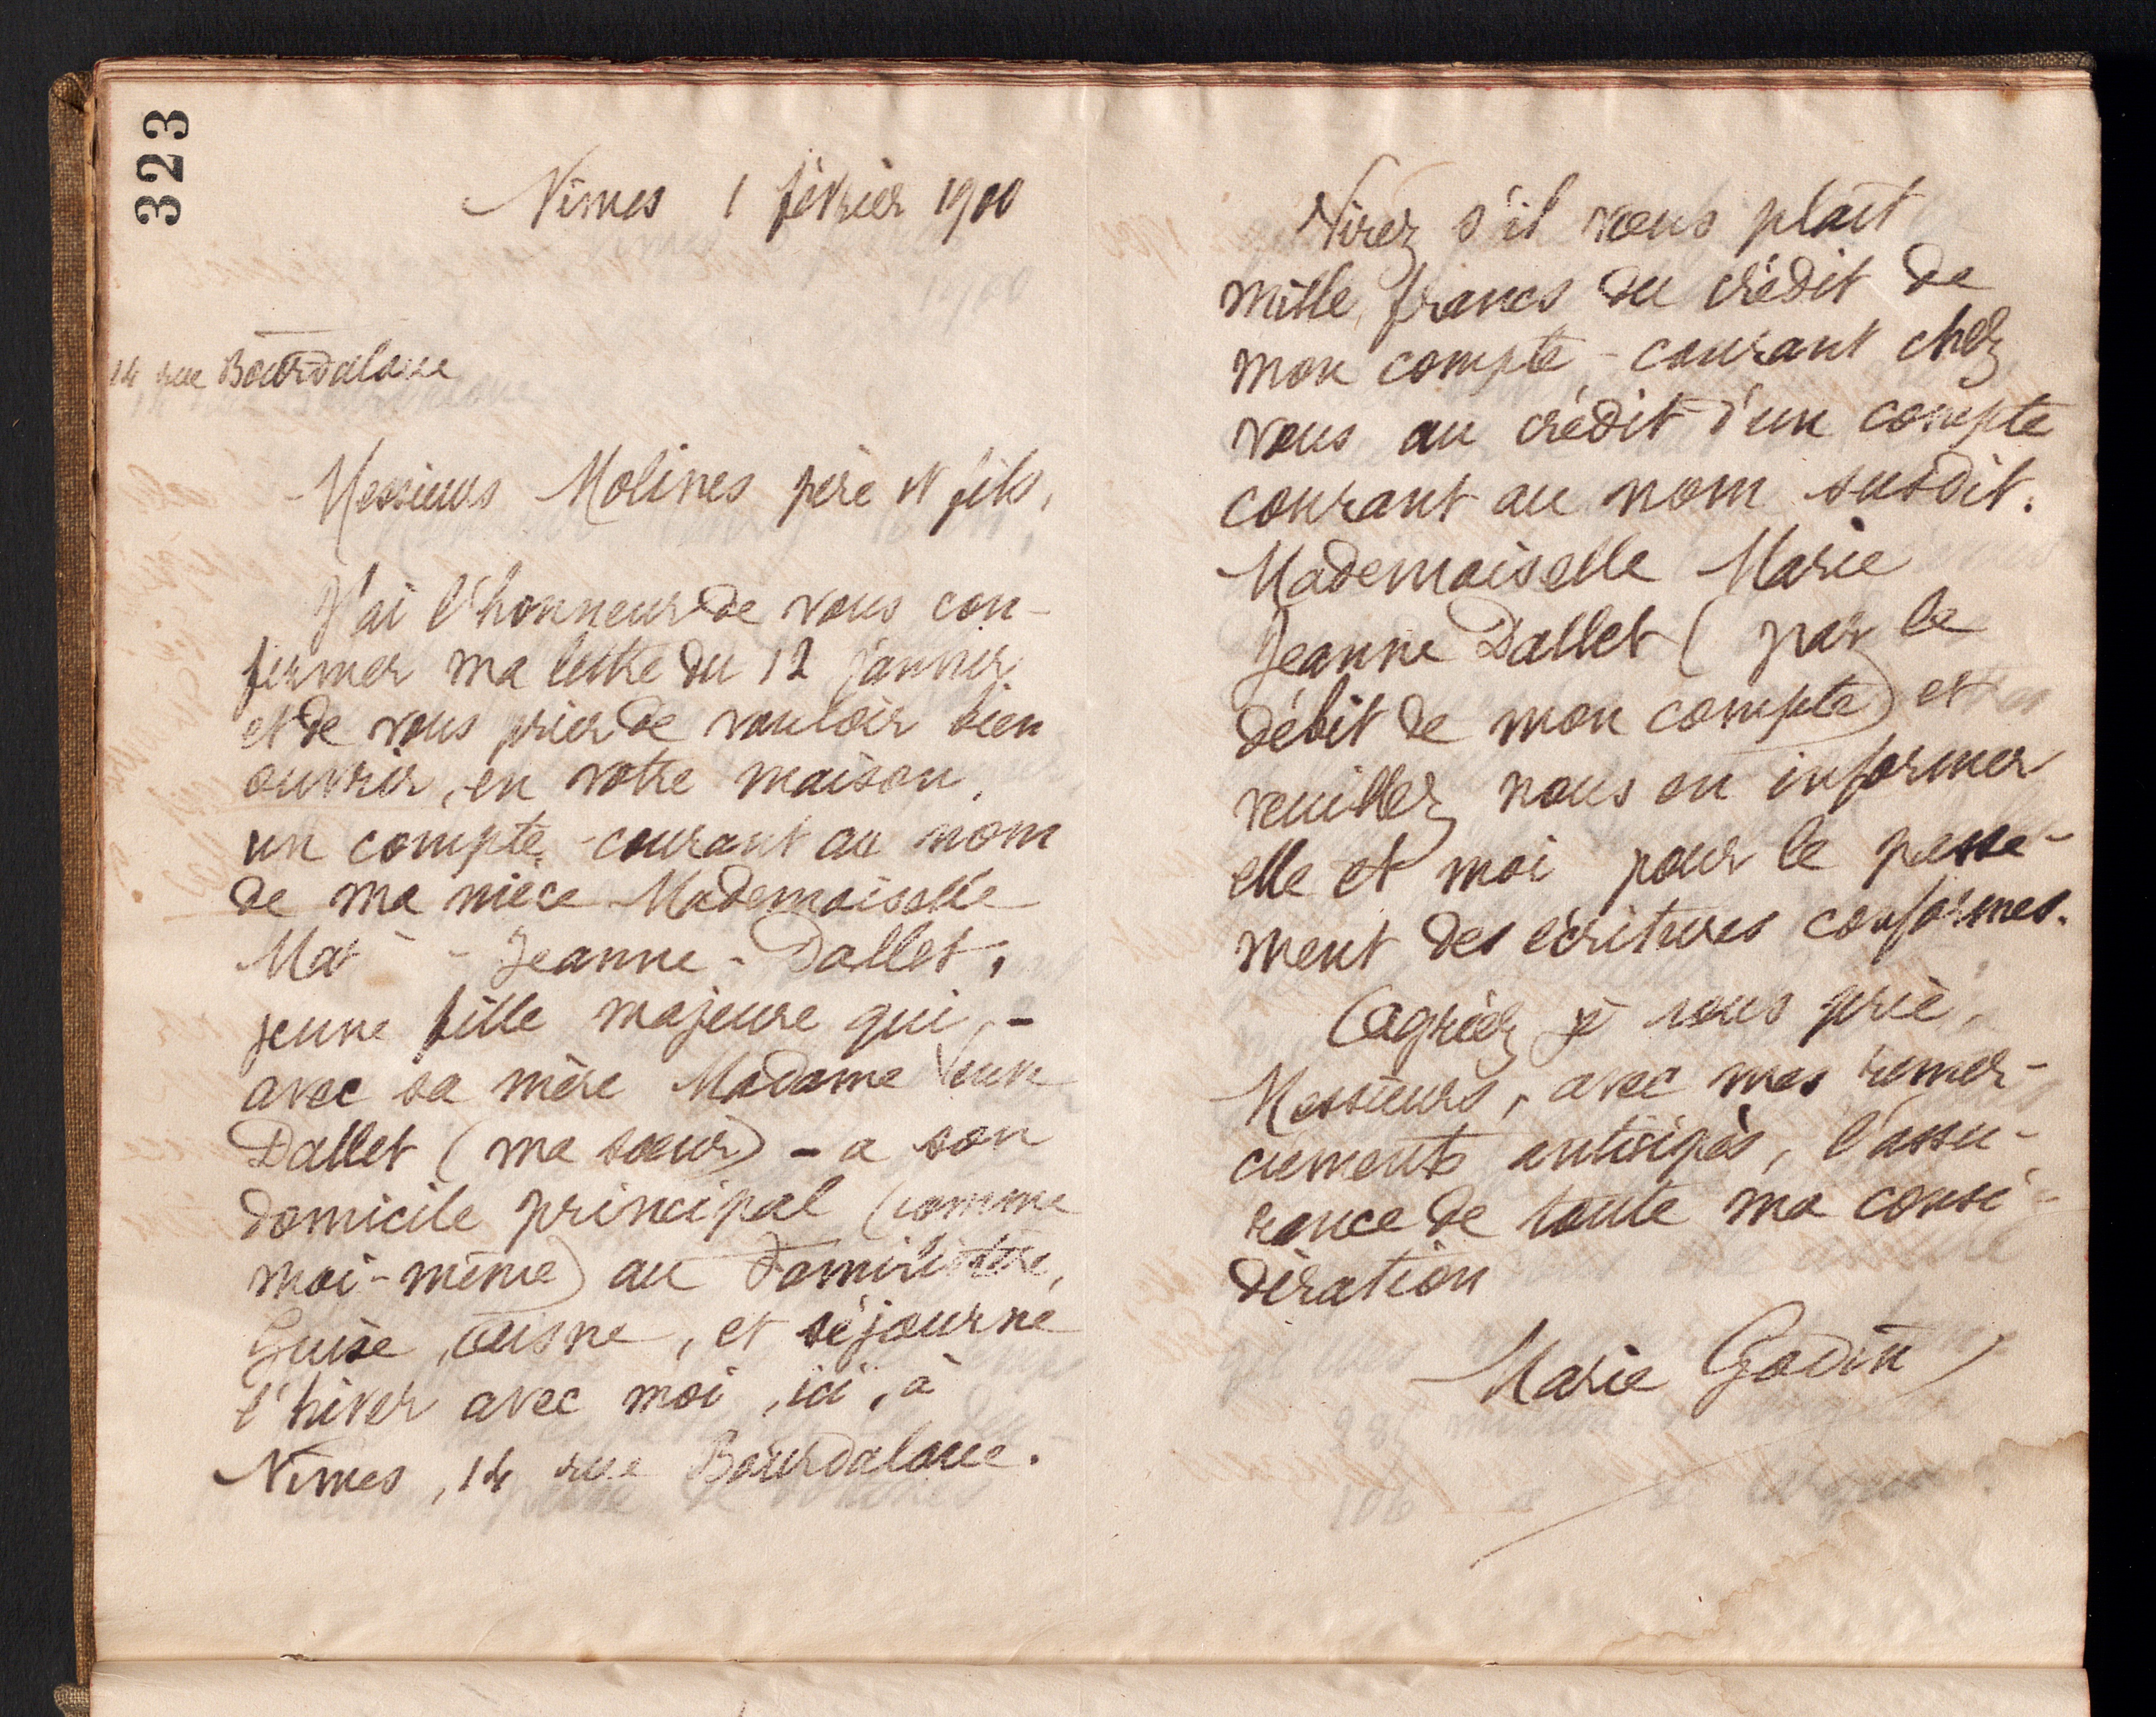 323
Nîmes 1 février 1900
14 rue Bourdaloue
Messieurs Molines père et fils,
J'ai l'honneur de vous con-
firmer ma lettre du 12 janvier
et de vous prier de vouloir bien
ouvrir, en votre maison,
un compte-courant au nom
de ma nièce Mademoiselle
Mar - Jeanne-Dallet,
jeune fille majeure qui, -
avec sa mère Madame Veuve
Dallet (ma sœur) - a son
domicile principal (comme
moi-même) au Familistère,
Guise, Aisne, et séjourne
l'hiver avec moi, ici, à
Nîmes, 14 rue Bourdaloue.
Virez s'il vous plaît
mille francs du crédit de
mon compte-courant chez
vous au crédit d'un compte
courant au nom susdit.
Mademoiselle Marie
Jeanne Dallet (par le
débit de mon compte) et
veuillez nous en informer
elle et moi pour le passe-
ment des écritures conformes.
Agréez je vous prie,
Messieurs, avec mes remer-
ciements anticipés, l'assu-
rance de toute ma consi-
dération
Marie Godin